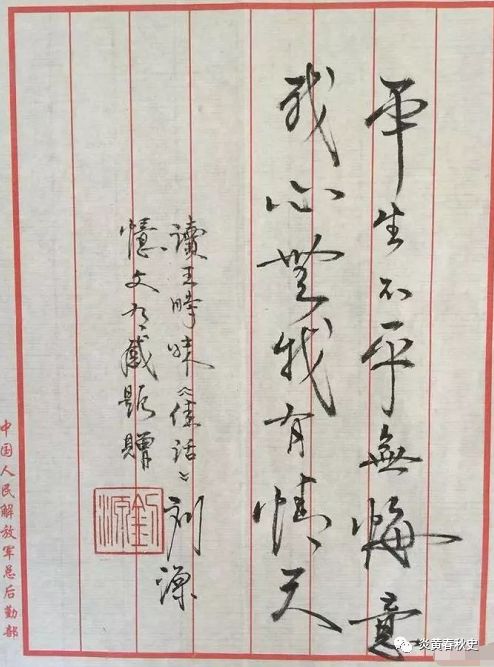 平生不平無悔意
我心無我有情天
讀王時味《傣話》
憶文有感題贈
刘源
劉源
中国人民解放军总后勤部
炎黄春秋史